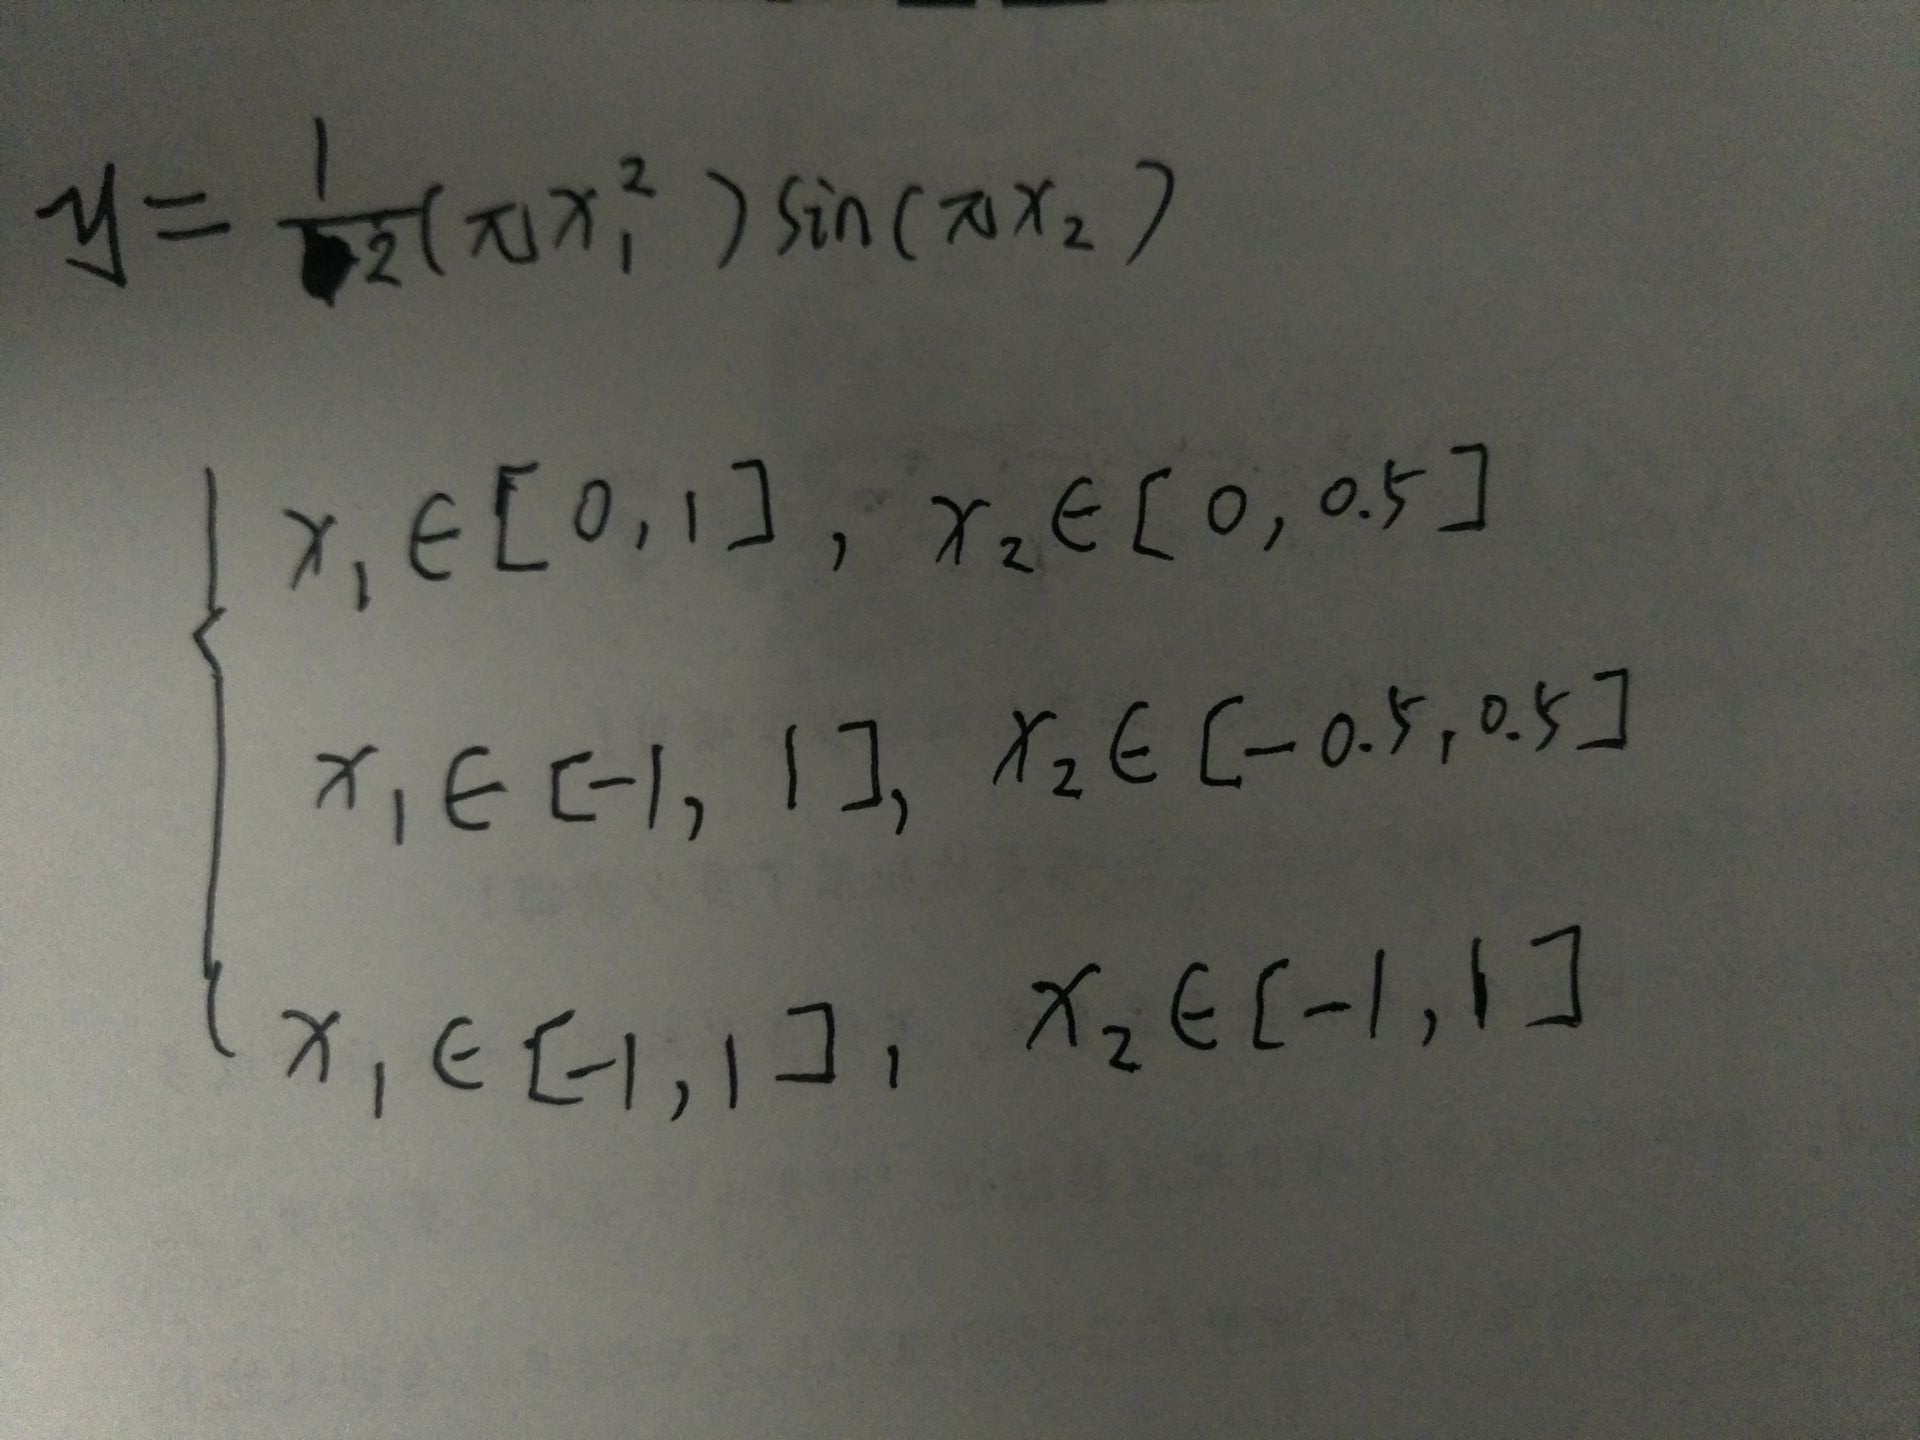 y = 1/2 (πx₁²) sin(πx₂)
{ x₁ ∈ [0, 1], x₂ ∈ [0, 0.5]
x₁ ∈ [-1, 1], x₂ ∈ [-0.5, 0.5]
x₁ ∈ [-1, 1], x₂ ∈ [-1, 1]